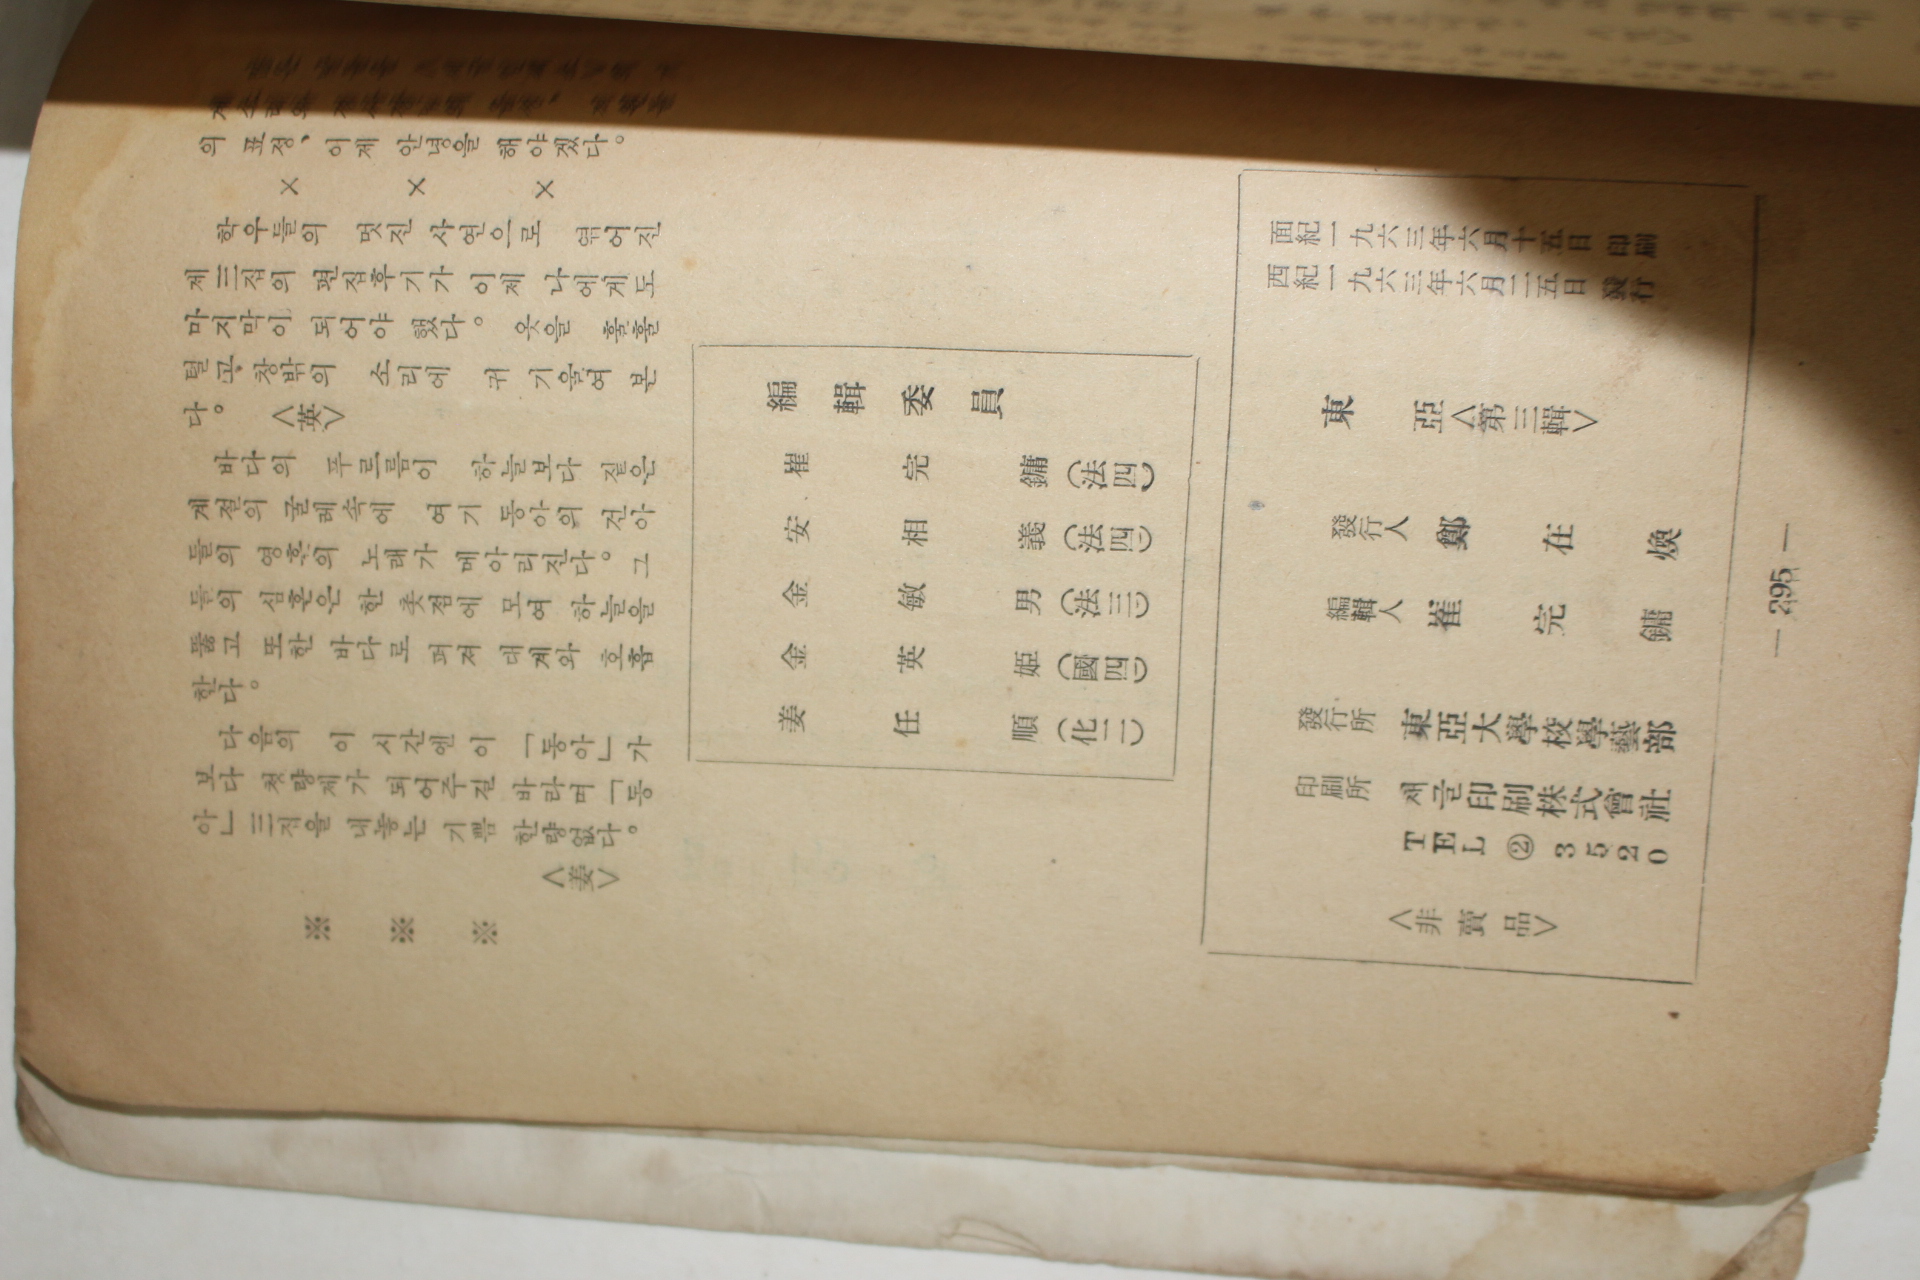 의 표정、이제 안녕을 해야겠다。
× × ×
학우들의 멋진 사연으로 엮어진
제三집의 편집후기가 이제 나에게도
마지막이 되어야 했다。 옷을 훌훌
털고、창밖의 소리에 귀 기울여 본
다。 <英>
바다의 푸르름이 하늘보다 짙은
계절의 굴레속에 여기 동아의 건아
들의 영혼의 노래가 메아리진다。 그
들의 심혼은 한 촛점에 모여 하늘을
뚫고 또한 바다로 퍼져 대계와 호흡
한다。
다음의 이 시간엔 이 「동아」가
보다 청량제가 되어주길 바라며 「동
아」三집을 내놓는 기쁨 한량없다。
<姜>
※ ※ ※
編輯委員
崔完鏞(法四)
安相義(法四)
金敏男(法三)
金英姬(國四)
姜任順(化二)
面紀一九六三年六月十五日 印刷
西紀一九六三年六月二五日 發行
東亞<第三輯>
發行人 鄭在煥
編輯人 崔完鏞
發行所 東亞大學校學藝部
印刷所 새글印刷株式會社
TEL ② 3520
<非賣品>
— 295 —